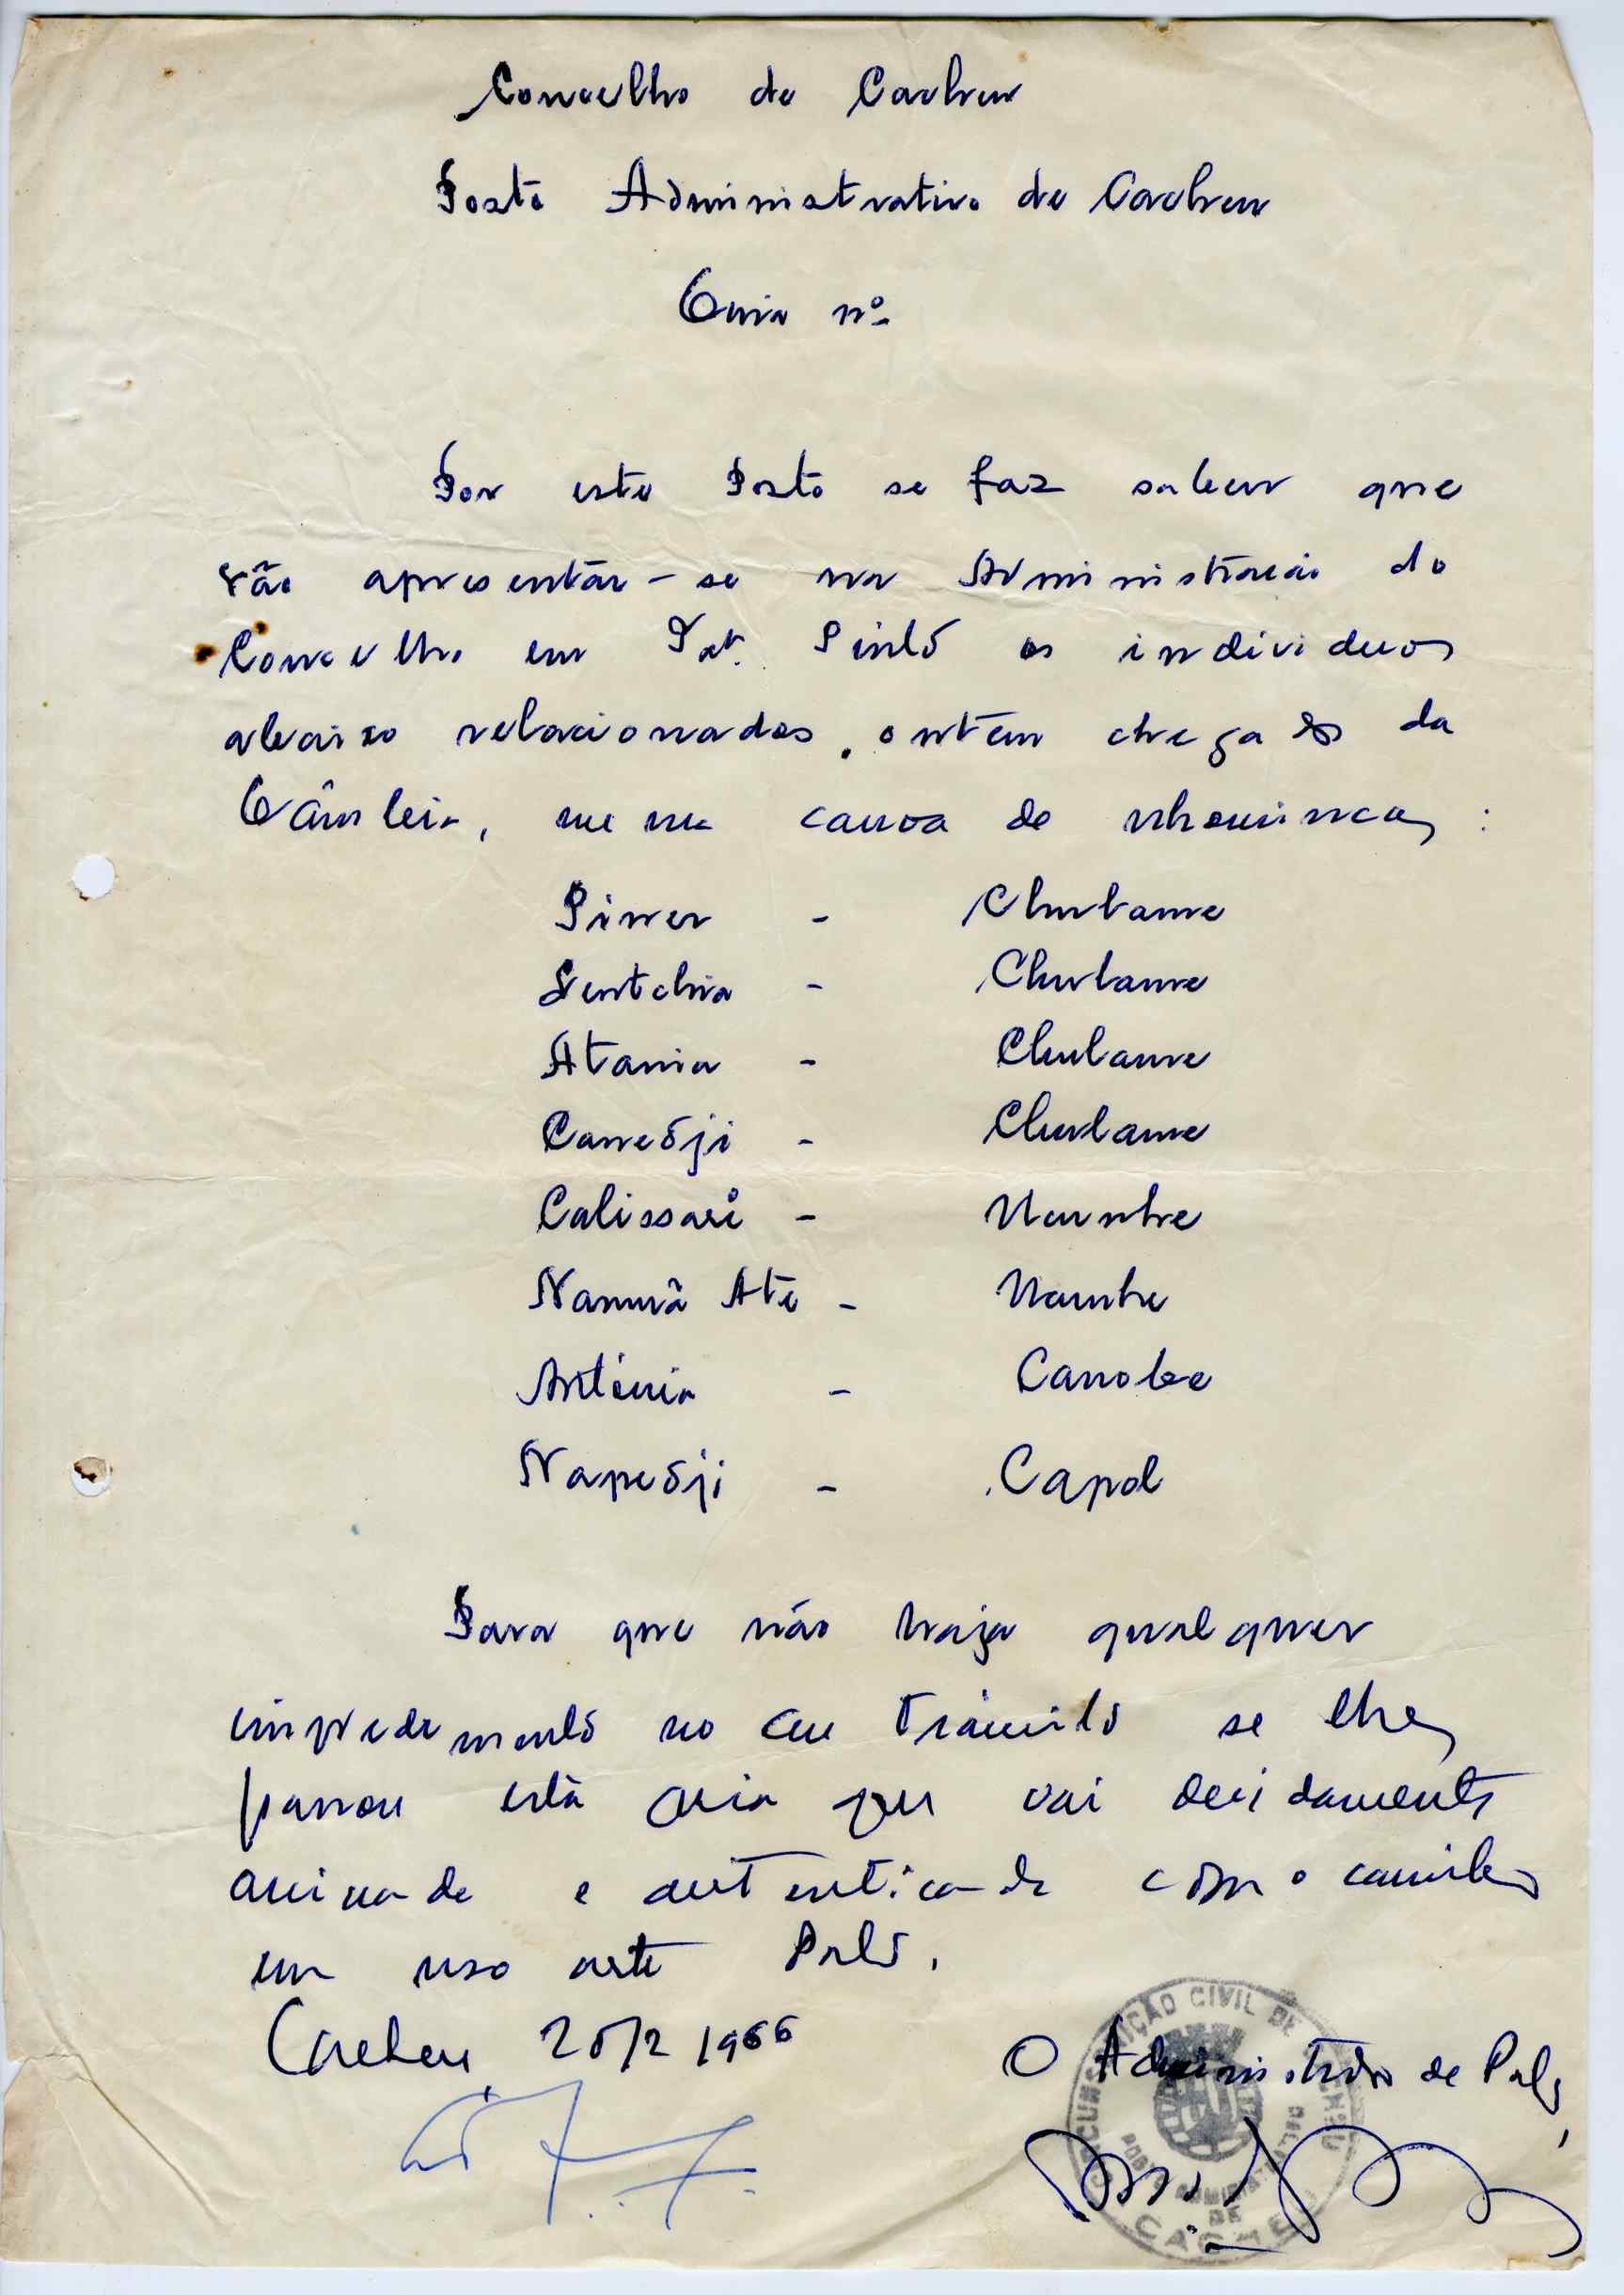 Concelho de Cacheu
Posto Administrativo de Cacheu
Guia nº
Por este Posto se faz saber que
vão apresentar-se na Administração do
Concelho em Tex. Pinto os individuos
abaixo relacionados, ontem chegados da
Gâmbia, numa canoa de nhomincas:
Piner - Churbame
Sentchia - Churbame
Atania - Churbame
Canedji - Churbame
Calissari - Naunhe
Namuã Ate - Naunhe
António - Canobe
Napedji - Capol
Para que não haja qualquer
impedimento no seu trânsito se lhes
passou esta guia que vai devidamente
assinada e autenticada com o carimbo
em uso neste Posto.
Cacheu, 25/2 1966
O Administrador de Posto,
CIRCUNSCRIÇÃO CIVIL DE CACHEU
POSTO ADMINIST. DE
CACHEU